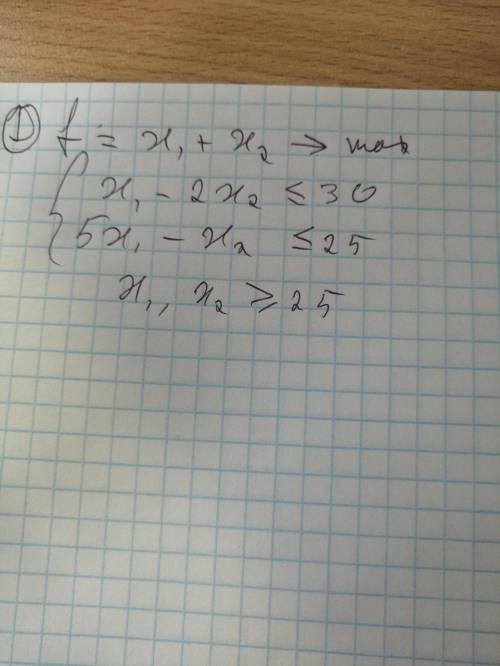 ① f = x₁ + x₂ → max
{ x₁ - 2x₂ ≤ 30
5x₁ - x₂ ≤ 25
x₁, x₂ ≥ 25